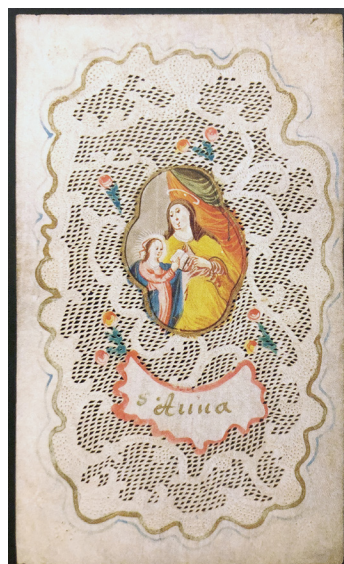 S. Anna